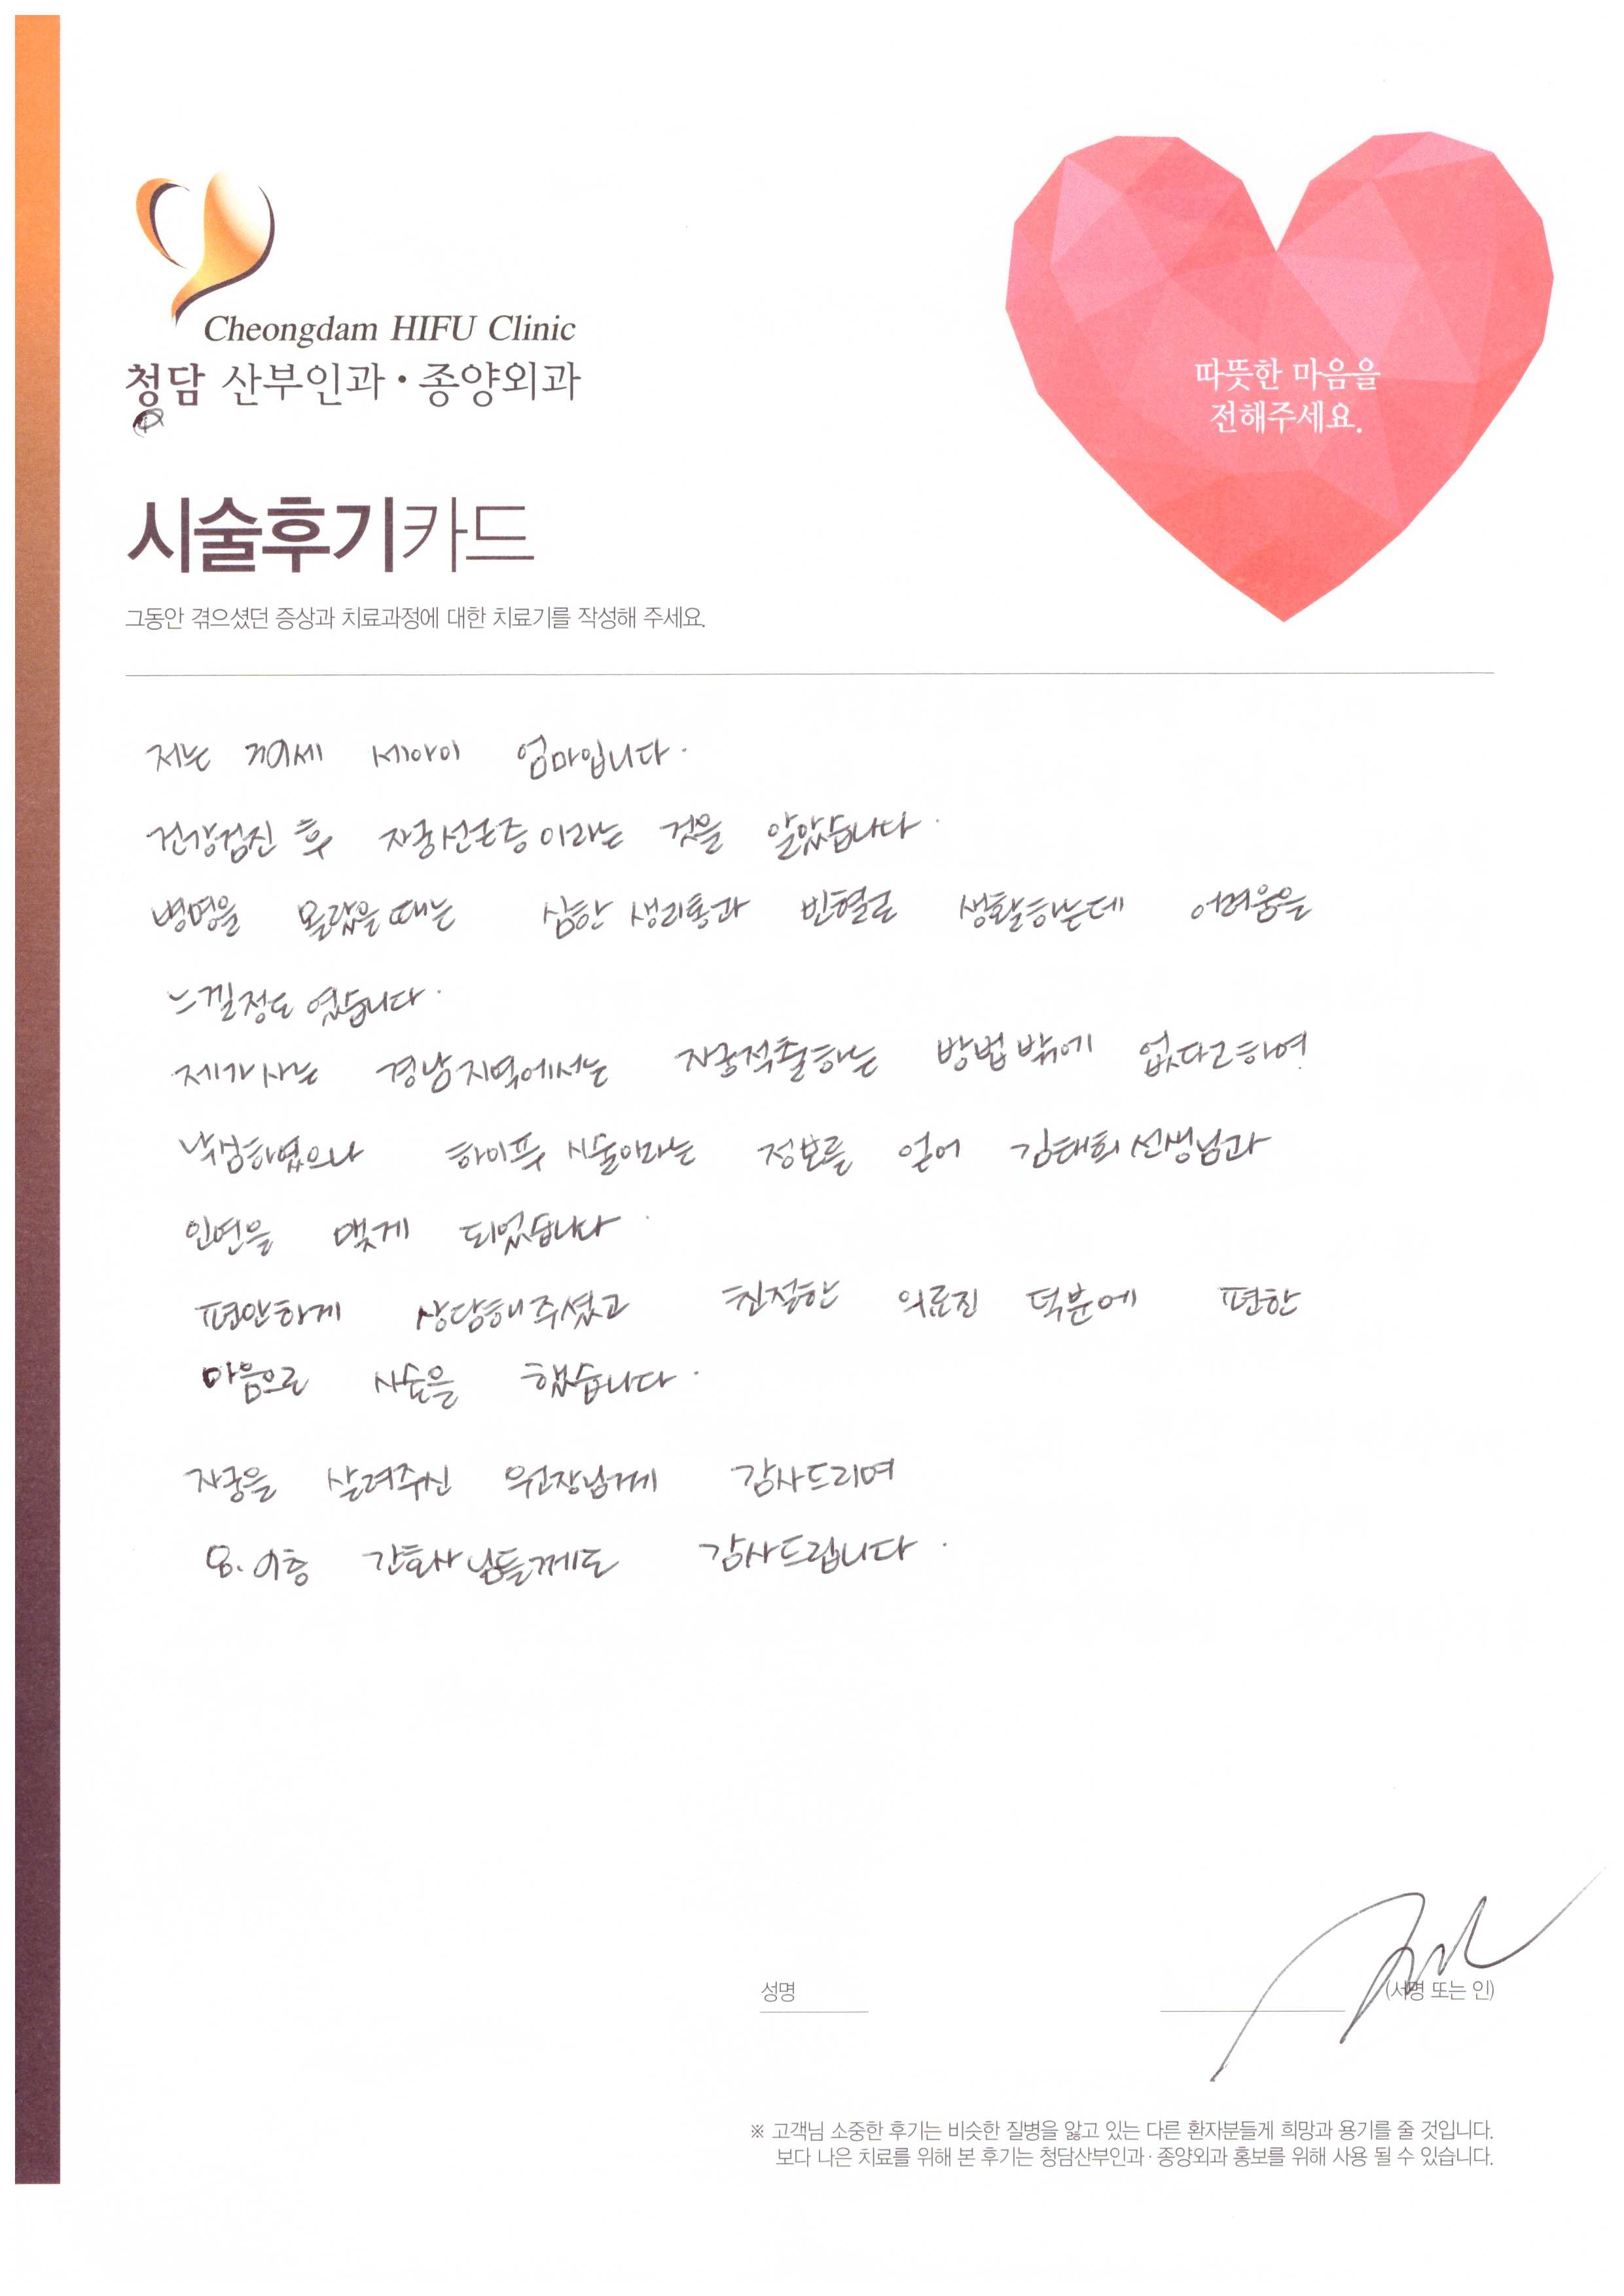 Cheongdam HIFU Clinic
청담 산부인과·종양외과
따뜻한 마음을
전해주세요.
시술후기카드
그동안 겪으셨던 증상과 치료과정에 대한 치료기를 작성해 주세요.
저는 세아이 엄마입니다.
건강검진 후 자궁선근증이라는 것을 알았습니다.
병명을 몰랐을때는 심한 생리통과 빈혈로 생활하는데 어려움을
느낄정도 였습니다.
제가 사는 경남지역에서는 자궁적출하는 방법밖에 없다고하여
낙심하였으나 하이푸 시술이라는 정보를 얻어 김태희 선생님과
인연을 맺게 되었습니다.
편안하게 상담해주셨고 친절한 의료진 덕분에 편한
마음으로 시술을 했습니다.
자궁을 살려주신 원장님께 감사드리며
간호사님들께도 감사드립니다.
성명
(서명 또는 인)
※ 고객님 소중한 후기는 비슷한 질병을 앓고 있는 다른 환자분들게 희망과 용기를 줄 것입니다.
보다 나은 치료를 위해 본 후기는 청담산부인과·종양외과 홍보를 위해 사용 될 수 있습니다.